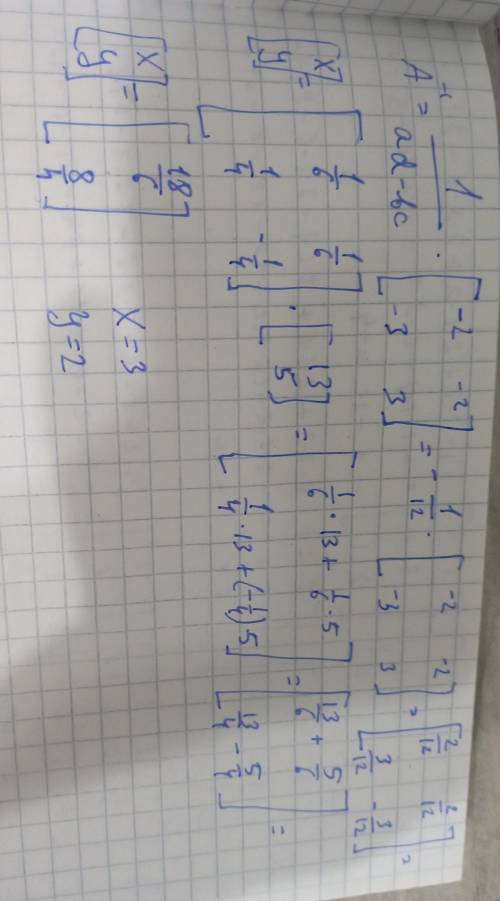 A⁻¹ = 1/(ad-bc) · [-2 -2; -3 3] = -1/12 · [-2 -2; -3 3] = [2/12 2/12; 3/12 -3/12] =
[x; y] = [1/6 1/6; 1/4 -1/4] · [13; 5] = [1/6·13 + 1/6·5; 1/4·13 + (-1/4)·5] = [13/6 + 5/6; 13/4 - 5/4] =
[x; y] = [18/6; 8/4]
x = 3
y = 2